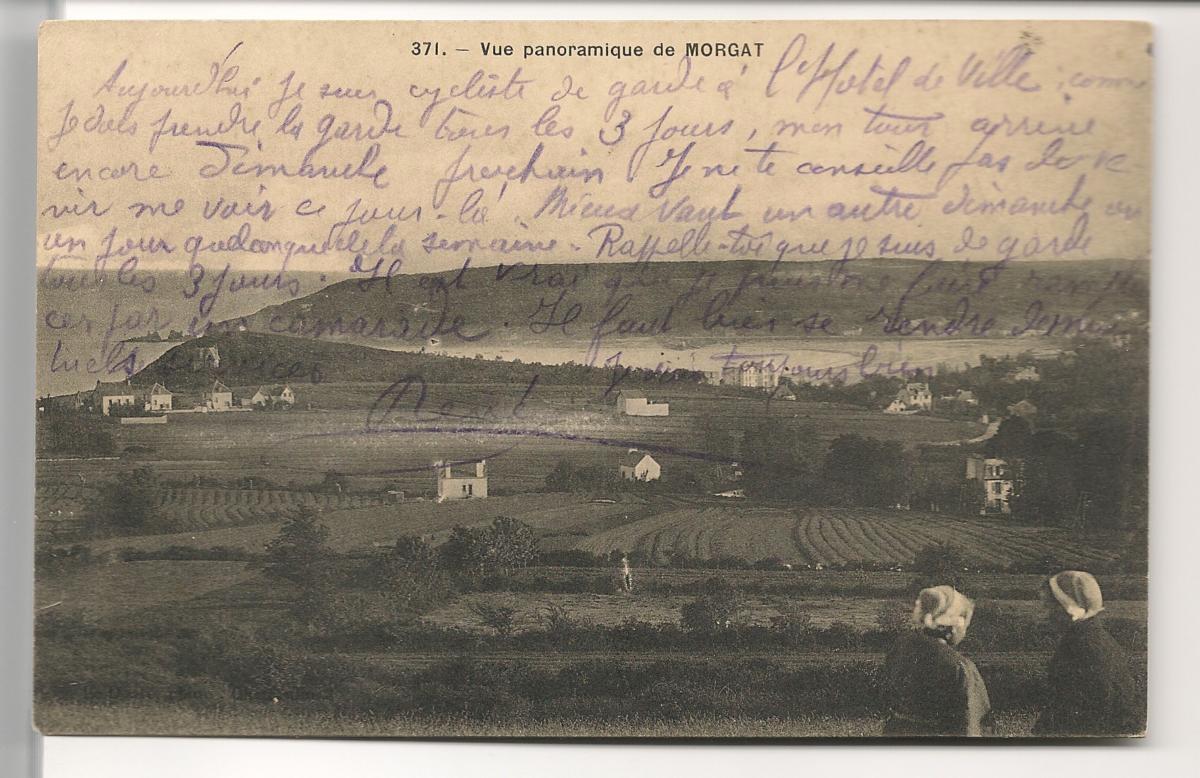 371. – Vue panoramique de MORGAT
Aujourd'hui je suis cycliste de garde à l'Hotel de Ville, comme
je dois prendre la garde tous les 3 jours, mon tour arrive
encore dimanche prochain Je ne te conseille pas de ve
nir me voir ce jour-là. Mieux vaut un autre dimanche ou
un jour quelconque de la semaine. Rappelle-toi que je suis de garde
tous les 3 jours. Il est vrai que je puis me faire rempla
cer par un camarade. Il faut bien se rendre de mu
tuels services Je vais toujours bien
René